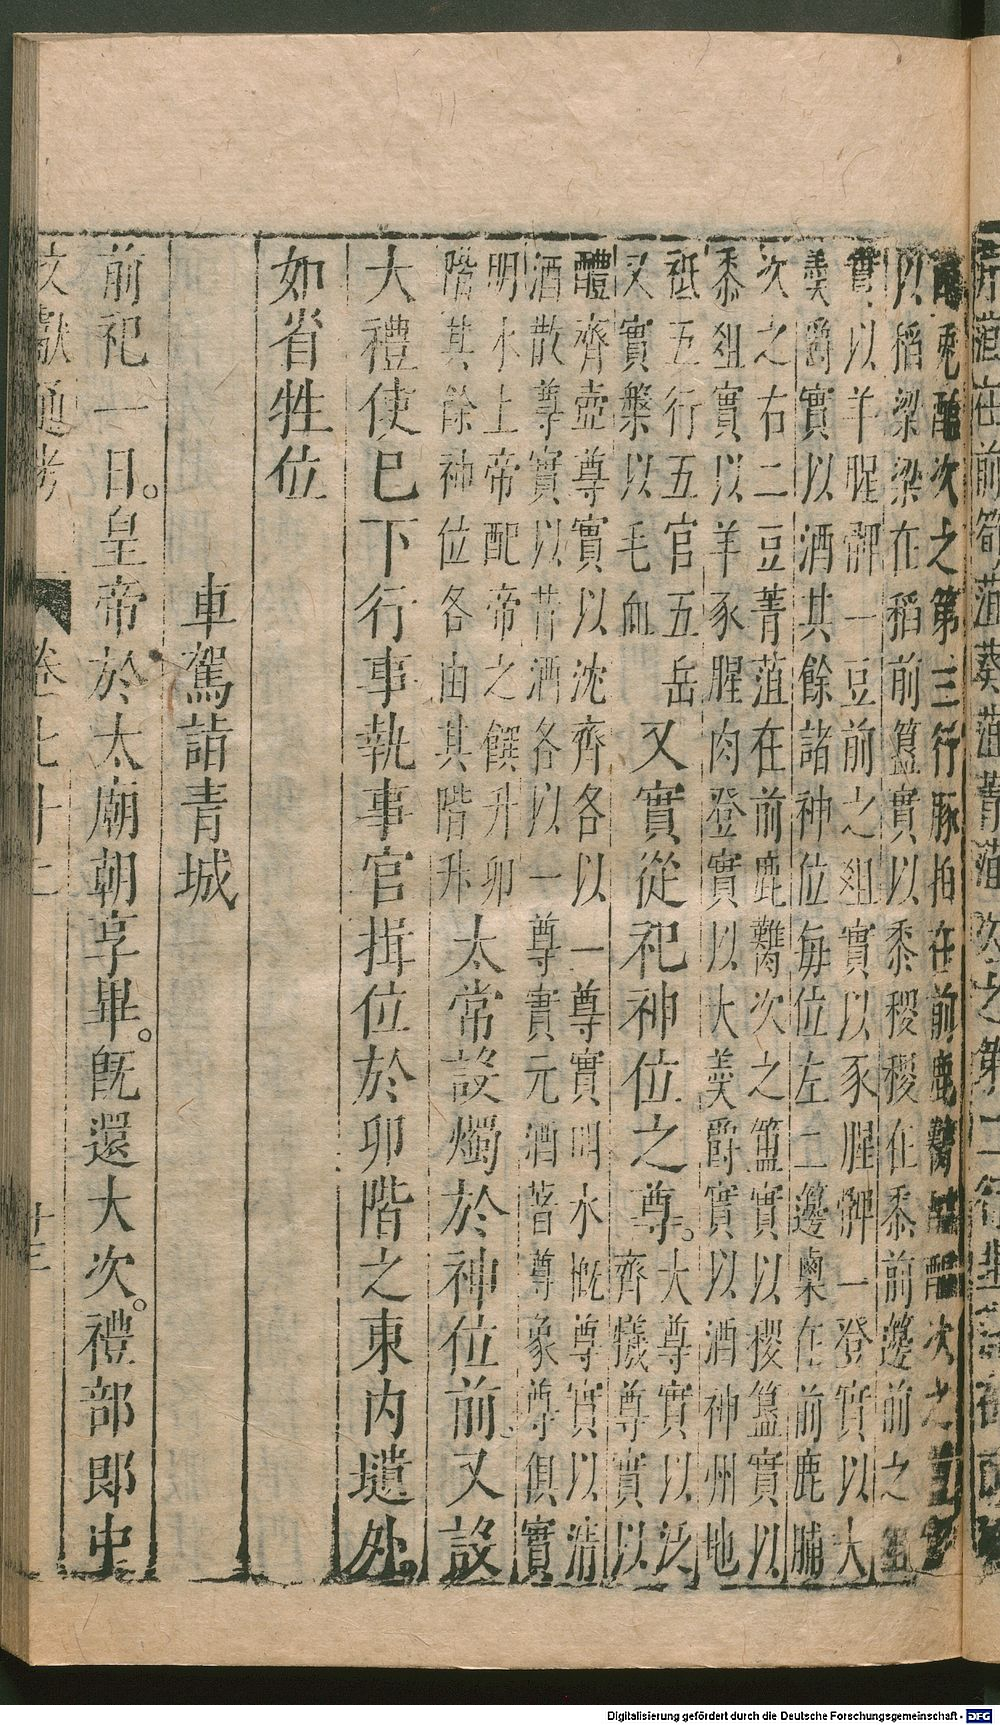 菹在前筍菹葵菹菁菹次之第二行
醢兎醢次之第三行豚拍在前鹿臡醓醢次之簠實
以稻粱粱在稻前簋實以黍稷稷在黍前籩前之俎
實以羊腥髀一豆前之俎實以豕腥髀一登實以大
羹爵實以酒其餘諸神位每位左二籩㮚在前鹿脯
次之右二豆菁菹在前鹿臡次之簠實以稷簋實以
黍俎實以羊豕腥肉登實以大羹爵實以酒神州地
祇五行五官五岳
又實槃以毛血
又實從祀神位之尊。
大尊實以泛
齊犧尊實以
醴齊壺尊實以沈齊各以一尊實明水概尊實以清
酒散尊實以昔酒各以一尊實元酒著尊象尊俱實
明水上帝配帝之饌升卯
階其餘神位各由其階升
太常設燭於神位前又設
大禮使已下行事執事官揖位於卯階之東内壝外。
如省牲位
車駕詣青城
前祀一日。皇帝於太廟朝享畢。旣還大次。禮部郎中
文獻通考 卷七十二 廿三
Digitalisierung gefördert durch die Deutsche Forschungsgemeinschaft - DFG